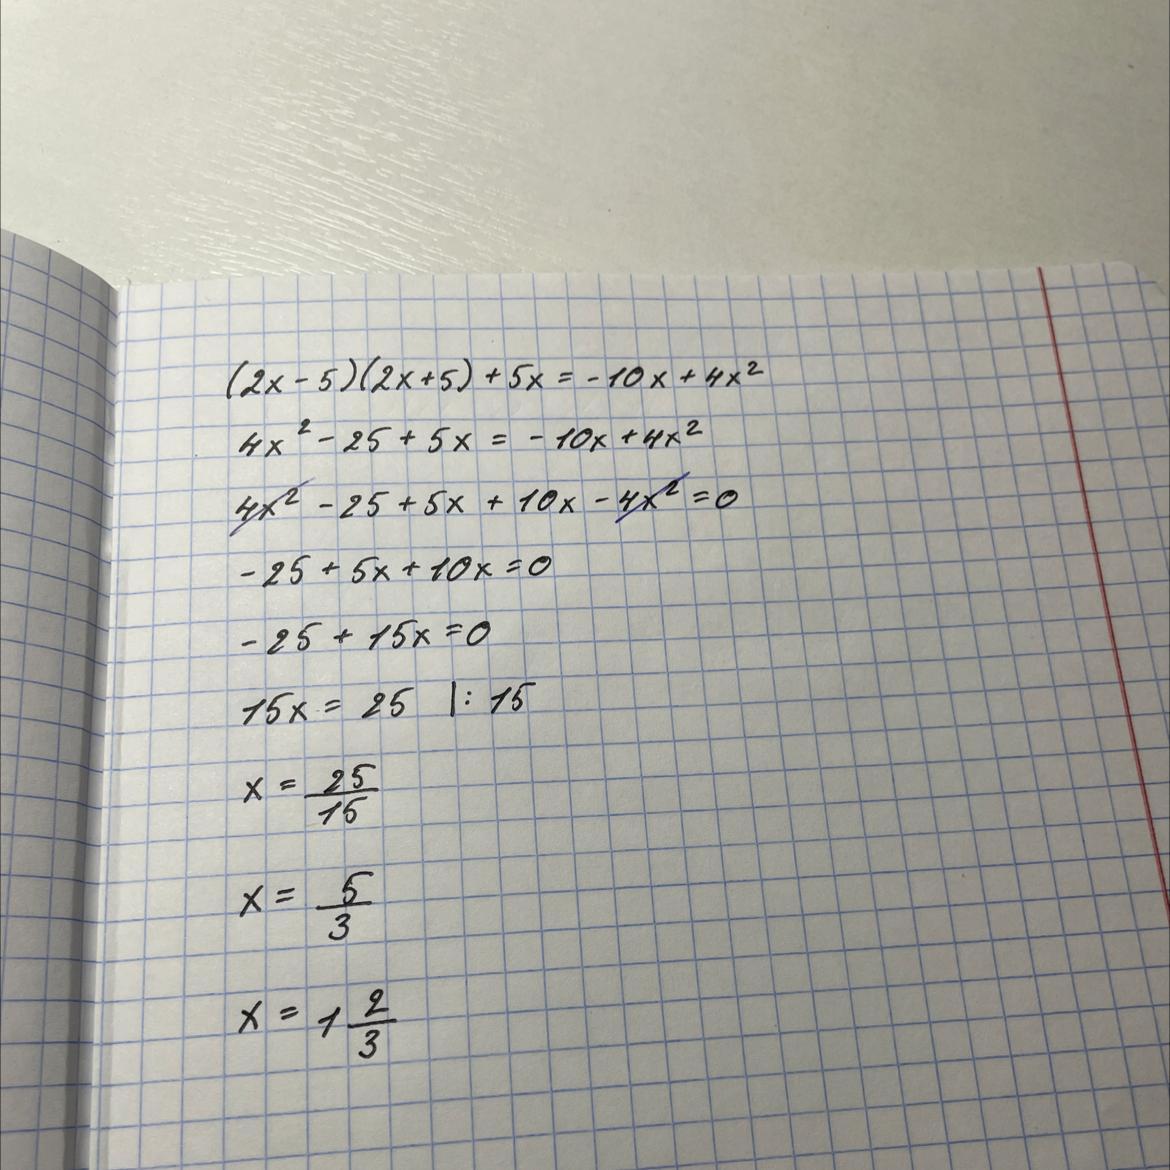 (2x-5)(2x+5)+5x=-10x+4x²
4x²-25+5x=-10x+4x²
4x²-25+5x+10x-4x²=0
-25+5x+10x=0
-25+15x=0
15x=25 |:15
x=25/15
x=5/3
x=1 2/3